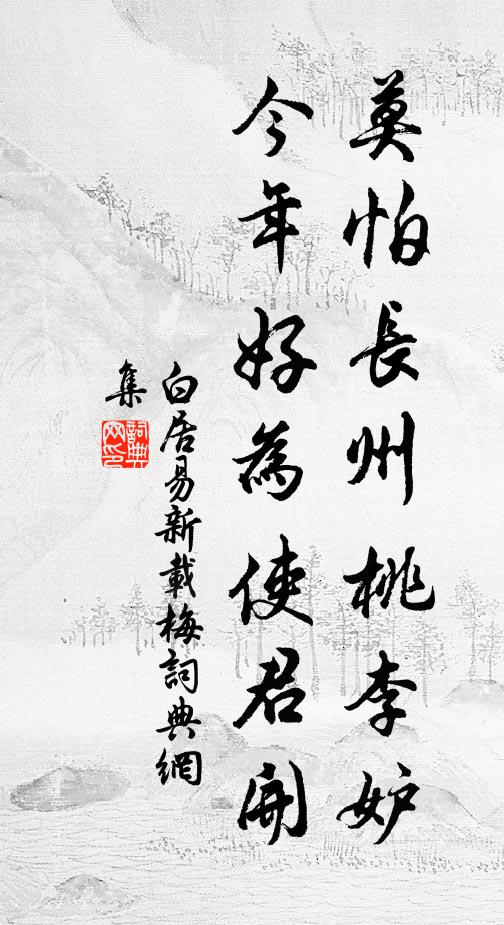 莫怕長州桃李妒
今年好為使君開
白居易新載梅詞典網
集
詞典
网印